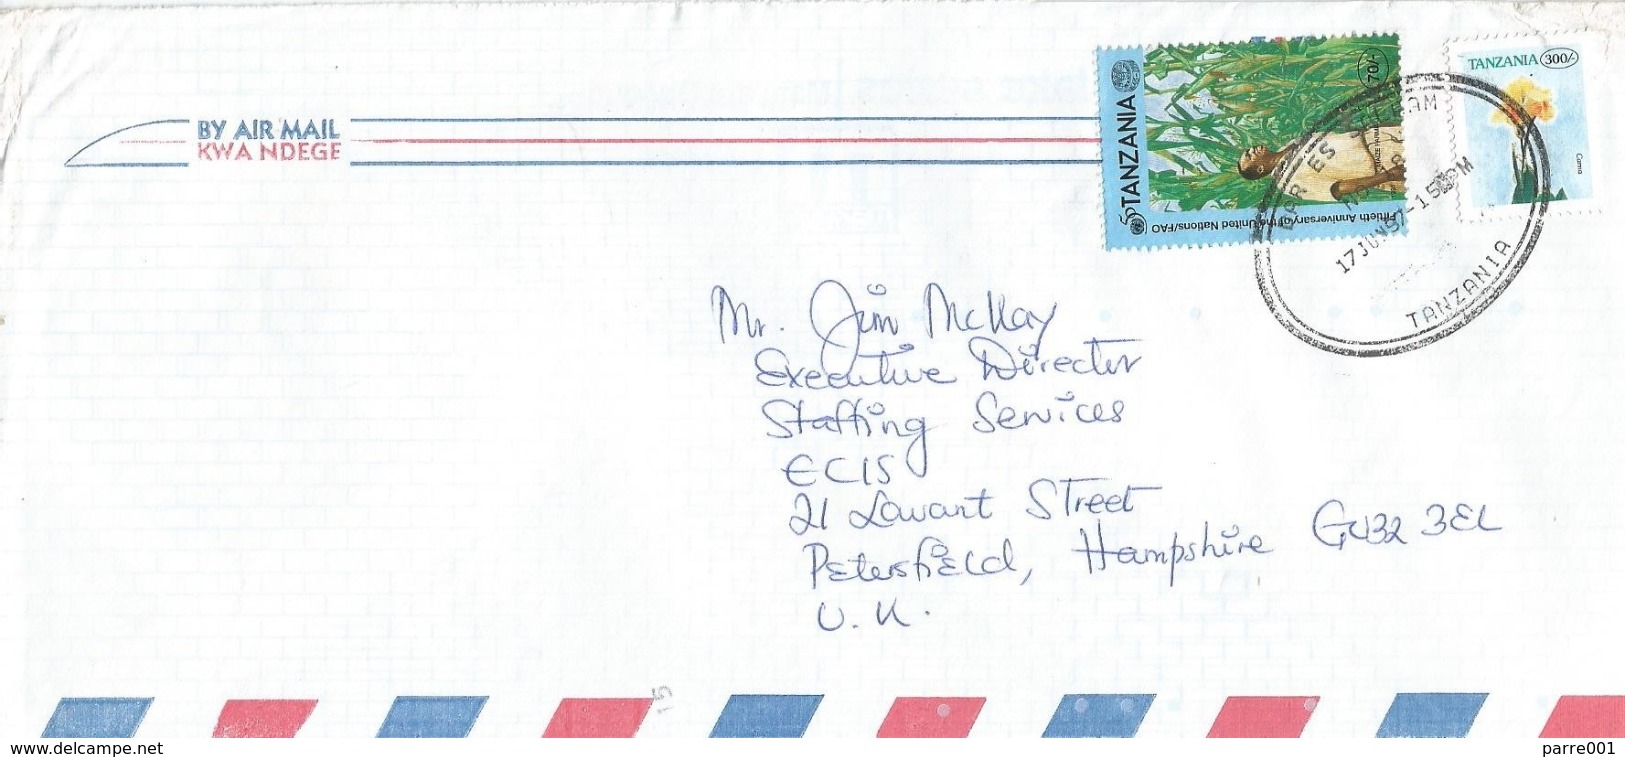 BY AIR MAIL
KWA NDEGE
TANZANIA
70/-
Fiftieth Anniversary of the United Nations/FAO
50
TANZANIA 300/-
Canna
DAR ES
AM
17 JUN 97-1.5 PM
TANZANIA
Mr. Jim McKay
Executive Director
Staffing Services
ECIS
21 Lavant Street
Petersfield, Hampshire GU32 3EL
U.K.
15
delcampe.net
parre001